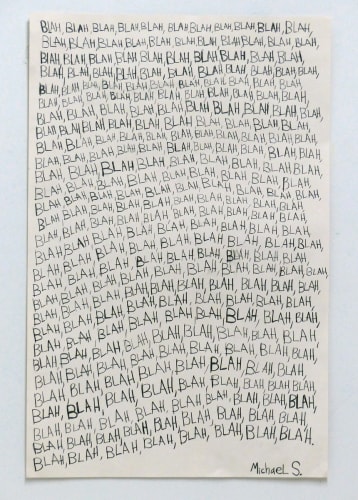 BLAH, BLAH BLAH, BLAH, BLAH, BLAH, BLAH, BLAH, BLAH, BLAH, BLAH,
BLAH, BLAH, BLAH BLAH, BLAH, BLAH, BLAH, BLAH, BLAH, BLAH, BLAH,
BLAH, BLAH, BLAH, BLAH, BLAH, BLAH, BLAH, BLAH, BLAH, BLAH, BLAH,
BLAH, BLAH, BLAH, BLAH, BLAH, BLAH, BLAH, BLAH, BLAH, BLAH, BLAH,
BLAH, BLAH, BLAH, BLAH, BLAH, BLAH, BLAH, BLAH, BLAH, BLAH, BLAH,
BLAH, BLAH, BLAH, BLAH, BLAH, BLAH, BLAH, BLAH, BLAH, BLAH, BLAH,
BLAH, BLAH, BLAH, BLAH, BLAH, BLAH, BLAH, BLAH, BLAH, BLAH,
BLAH, BLAH, BLAH, BLAH, BLAH, BLAH, BLAH, BLAH, BLAH, BLAH, BLAH,
BLAH, BLAH, BLAH, BLAH, BLAH, BLAH, BLAH, BLAH, BLAH, BLAH, BLAH,
BLAH, BLAH, BLAH, BLAH, BLAH, BLAH, BLAH, BLAH, BLAH, BLAH, BLAH,
BLAH, BLAH, BLAH, BLAH, BLAH, BLAH, BLAH, BLAH, BLAH, BLAH,
BLAH, BLAH, BLAH, BLAH, BLAH, BLAH, BLAH, BLAH, BLAH, BLAH,
BLAH, BLAH, BLAH, BLAH, BLAH, BLAH, BLAH, BLAH, BLAH, BLAH,
BLAH, BLAH, BLAH, BLAH, BLAH, BLAH, BLAH, BLAH, BLAH, BLAH,
BLAH, BLAH, BLAH, BLAH, BLAH, BLAH, BLAH, BLAH, BLAH,
BLAH, BLAH, BLAH, BLAH, BLAH, BLAH, BLAH, BLAH, BLAH, BLAH,
BLAH, BLAH, BLAH, BLAH, BLAH, BLAH, BLAH, BLAH, BLAH, BLAH,
BLAH, BLAH, BLAH, BLAH, BLAH, BLAH, BLAH, BLAH, BLAH,
BLAH, BLAH, BLAH, BLAH, BLAH, BLAH, BLAH, BLAH, BLAH,
BLAH, BLAH, BLAH, BLAH, BLAH, BLAH, BLAH, BLAH, BLAH,
BLAH, BLAH, BLAH, BLAH, BLAH, BLAH, BLAH, BLAH, BLAH
BLAH, BLAH, BLAH, BLAH, BLAH, BLAH, BLAH, BLAH, BLAH,
BLAH, BLAH, BLAH, BLAH, BLAH, BLAH, BLAH, BLAH, BLAH,
BLAH, BLAH, BLAH, BLAH, BLAH, BLAH, BLAH, BLAH,
BLAH, BLAH, BLAH, BLAH, BLAH, BLAH, BLAH, BLAH,
BLAH, BLAH, BLAH, BLAH, BLAH, BLAH, BLAH, BLAH,
BLAH, BLAH, BLAH, BLAH, BLAH, BLAH, BLAH, BLAH,
BLAH, BLAH, BLAH, BLAH, BLAH, BLAH, BLAH, BLAH.
MICHAEL S.